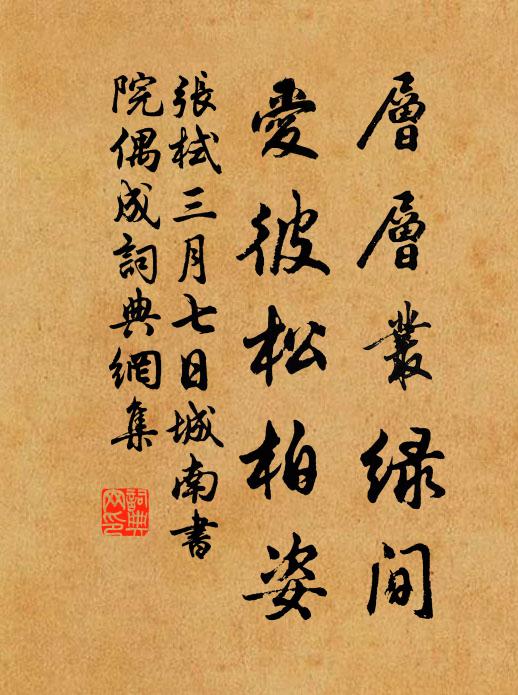 層層叢緑间
愛彼松柏姿
張栻三月七日城南書
院偶成詞典網集
詞典
网印